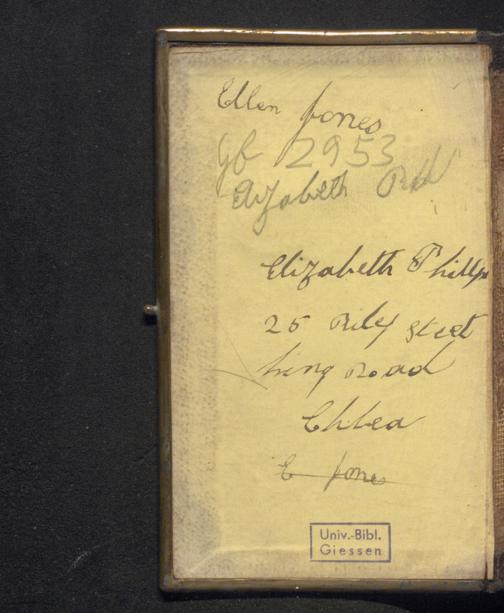 Ellen Jones
Gb 2953
Elizabeth
Elizabeth Phillips
25 Riley Street
King Road
Chlsea
E Jones
Univ.-Bibl.
Giessen